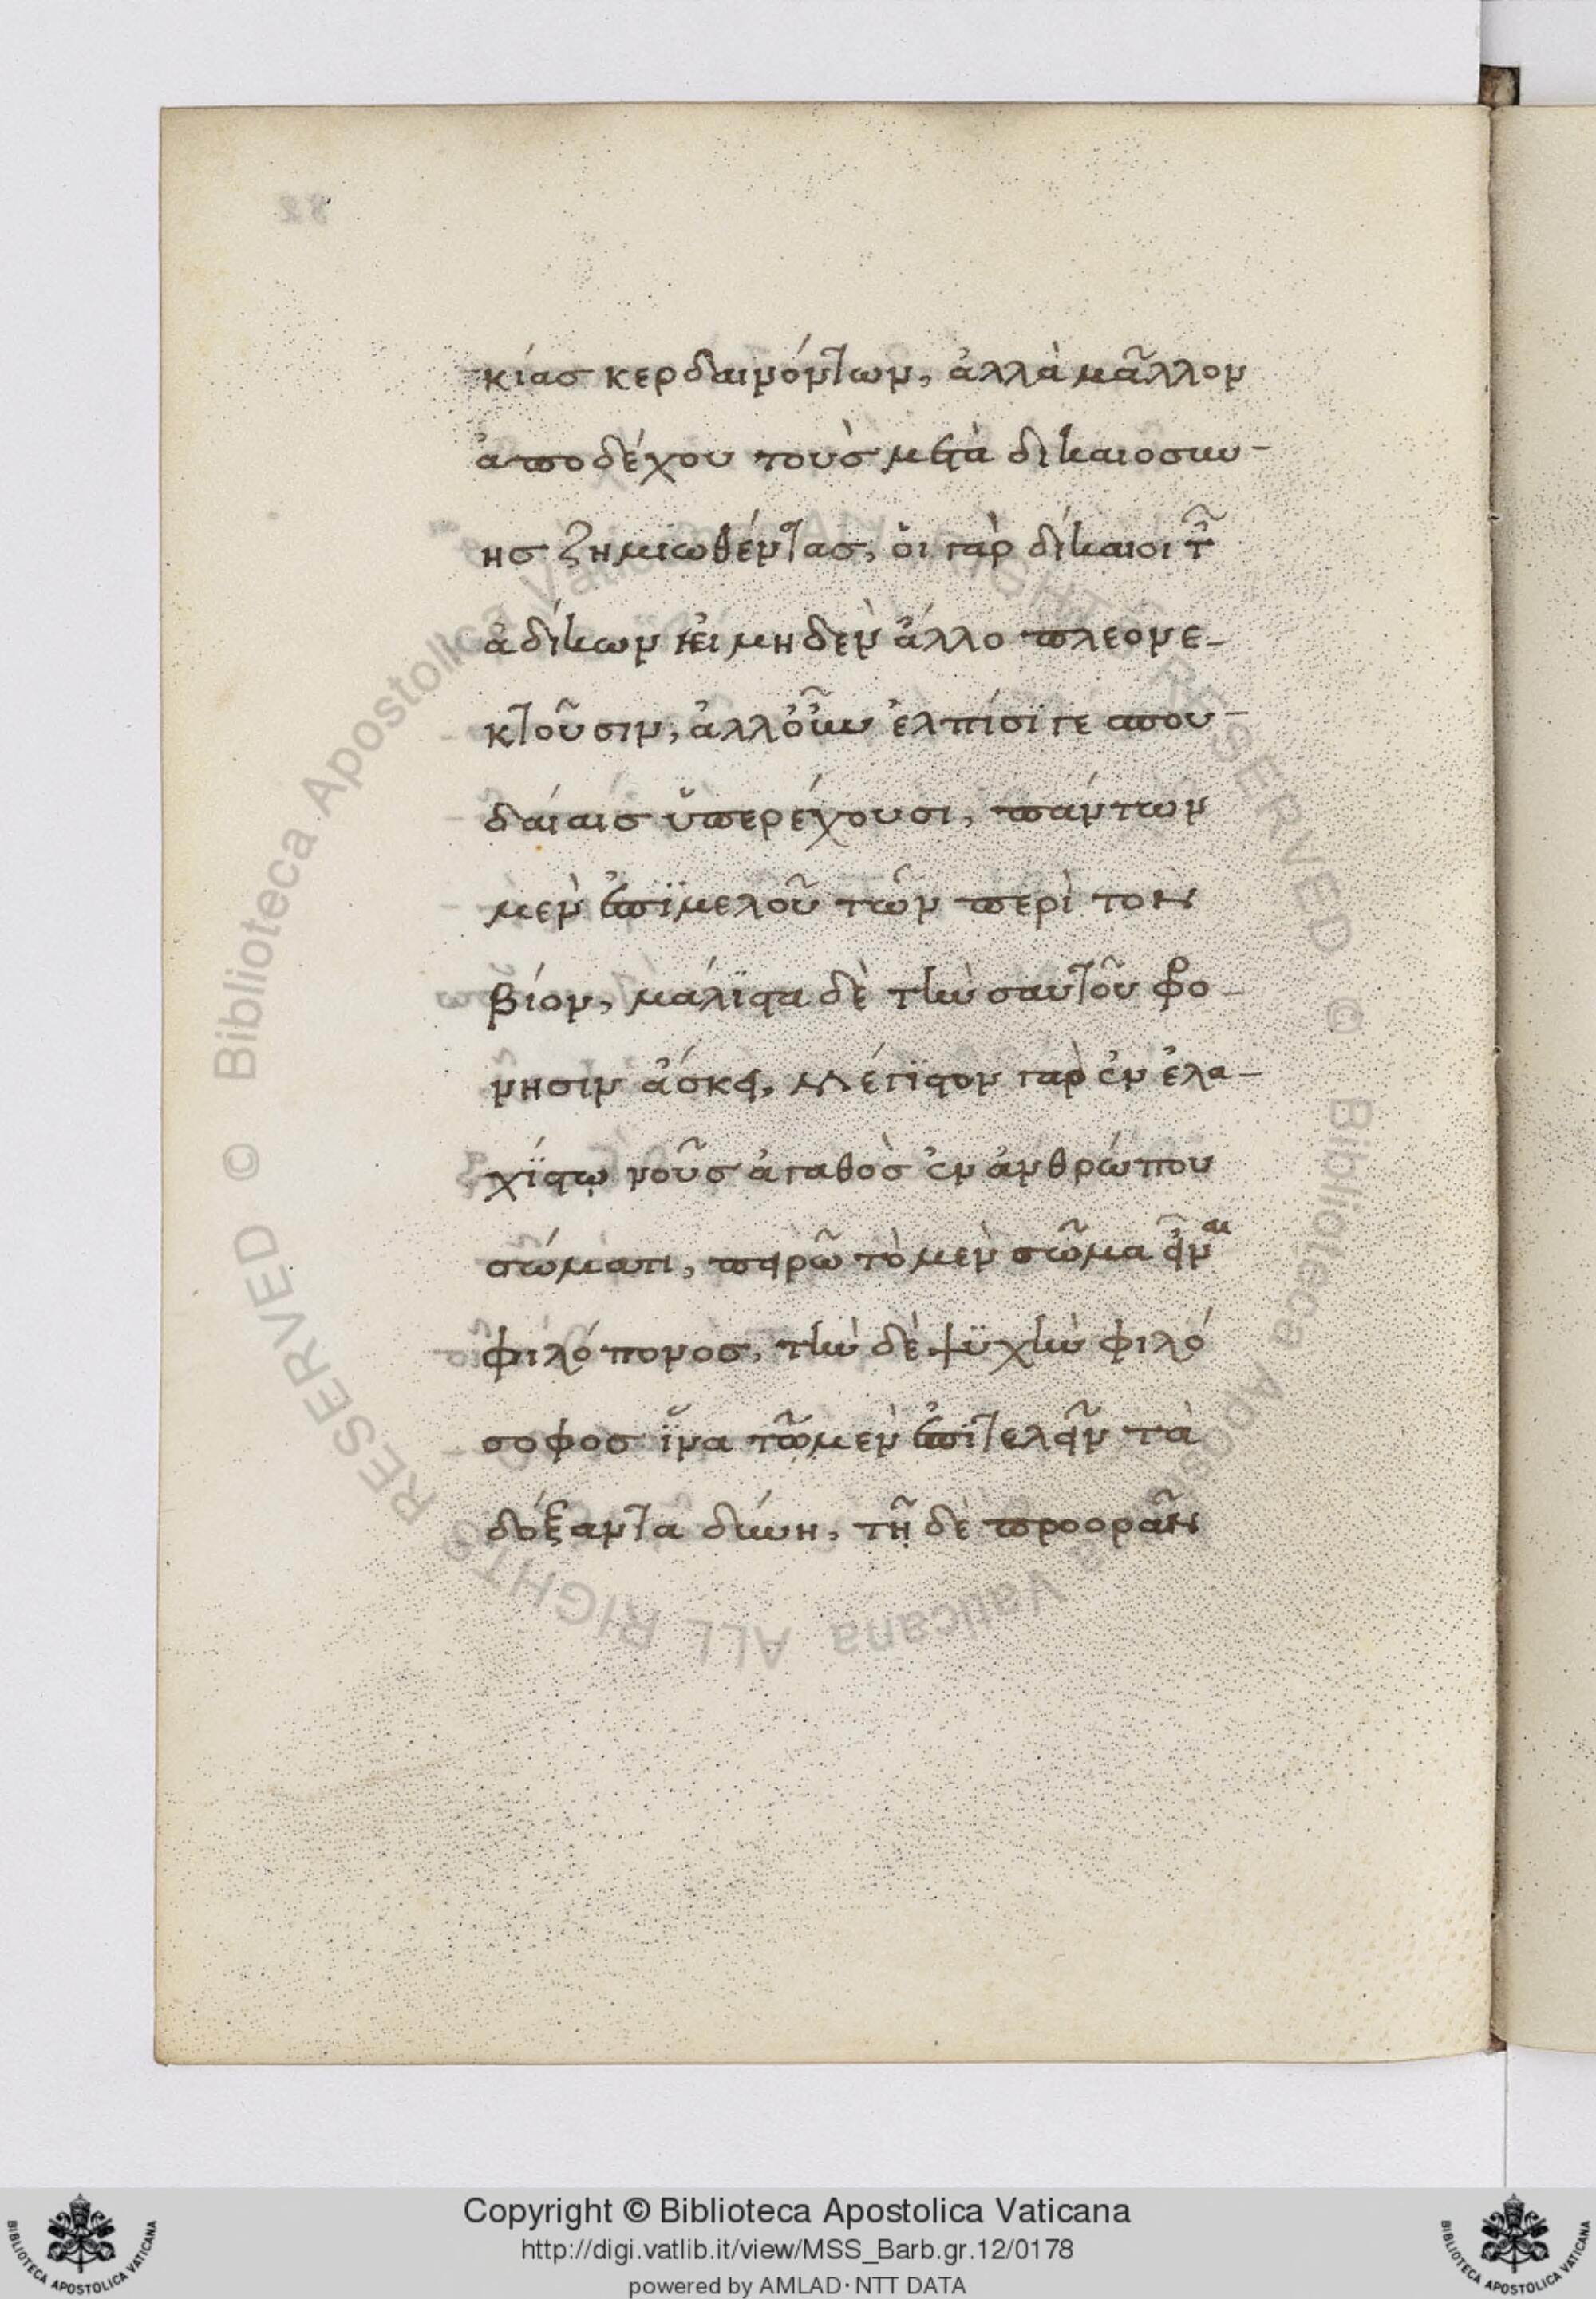 κίας κερδαινόντων, ἀλλὰ μᾶλλον
ἀποδέχου τοὺς μετὰ δικαιοσύ-
ης ζημιωθέντας, οἱ γὰρ δίκαιοι τ῀
ἀδίκων εἰ μηδὲν ἄλλο πλεονε-
κτοῦσιν, ἀλλοὖν ἐλπίσι γε σπου-
δαίαις ὑπερέχουσι, πάντων
μὲν ἐπιμελοῦ τῶν περὶ τὸν
βίον, μάλιστα δὲ τὴν σαυτοῦ φρό-
νησιν ἄσκει, Μέγιστον γὰρ ἐν ἐλα-
χίστῳ νοῦς ἀγαθὸς ἐν ἀνθρώπου
σώματι, πειρῶ τὸ μὲν σῶμα εἶναι
φιλόπονος, τὴν δὲ ψυχὴν φιλό
σοφος ἵνα τῷ μὲν ἐπιτελεῖν τὰ
δόξαντα δύνη, τῇ δὲ προορᾶν
82
© Biblioteca Apostolica Vaticana ALL RIGHTS RESERVED © Biblioteca Apostolica Vaticana ALL RIGHTS RESERVED
BIBLIOTECA APOSTOLICA VATICANA
Copyright © Biblioteca Apostolica Vaticana
http://digi.vatlib.it/view/MSS_Barb.gr.12/0178
powered by AMLAD·NTT DATA
BIBLIOTECA APOSTOLICA VATICANA